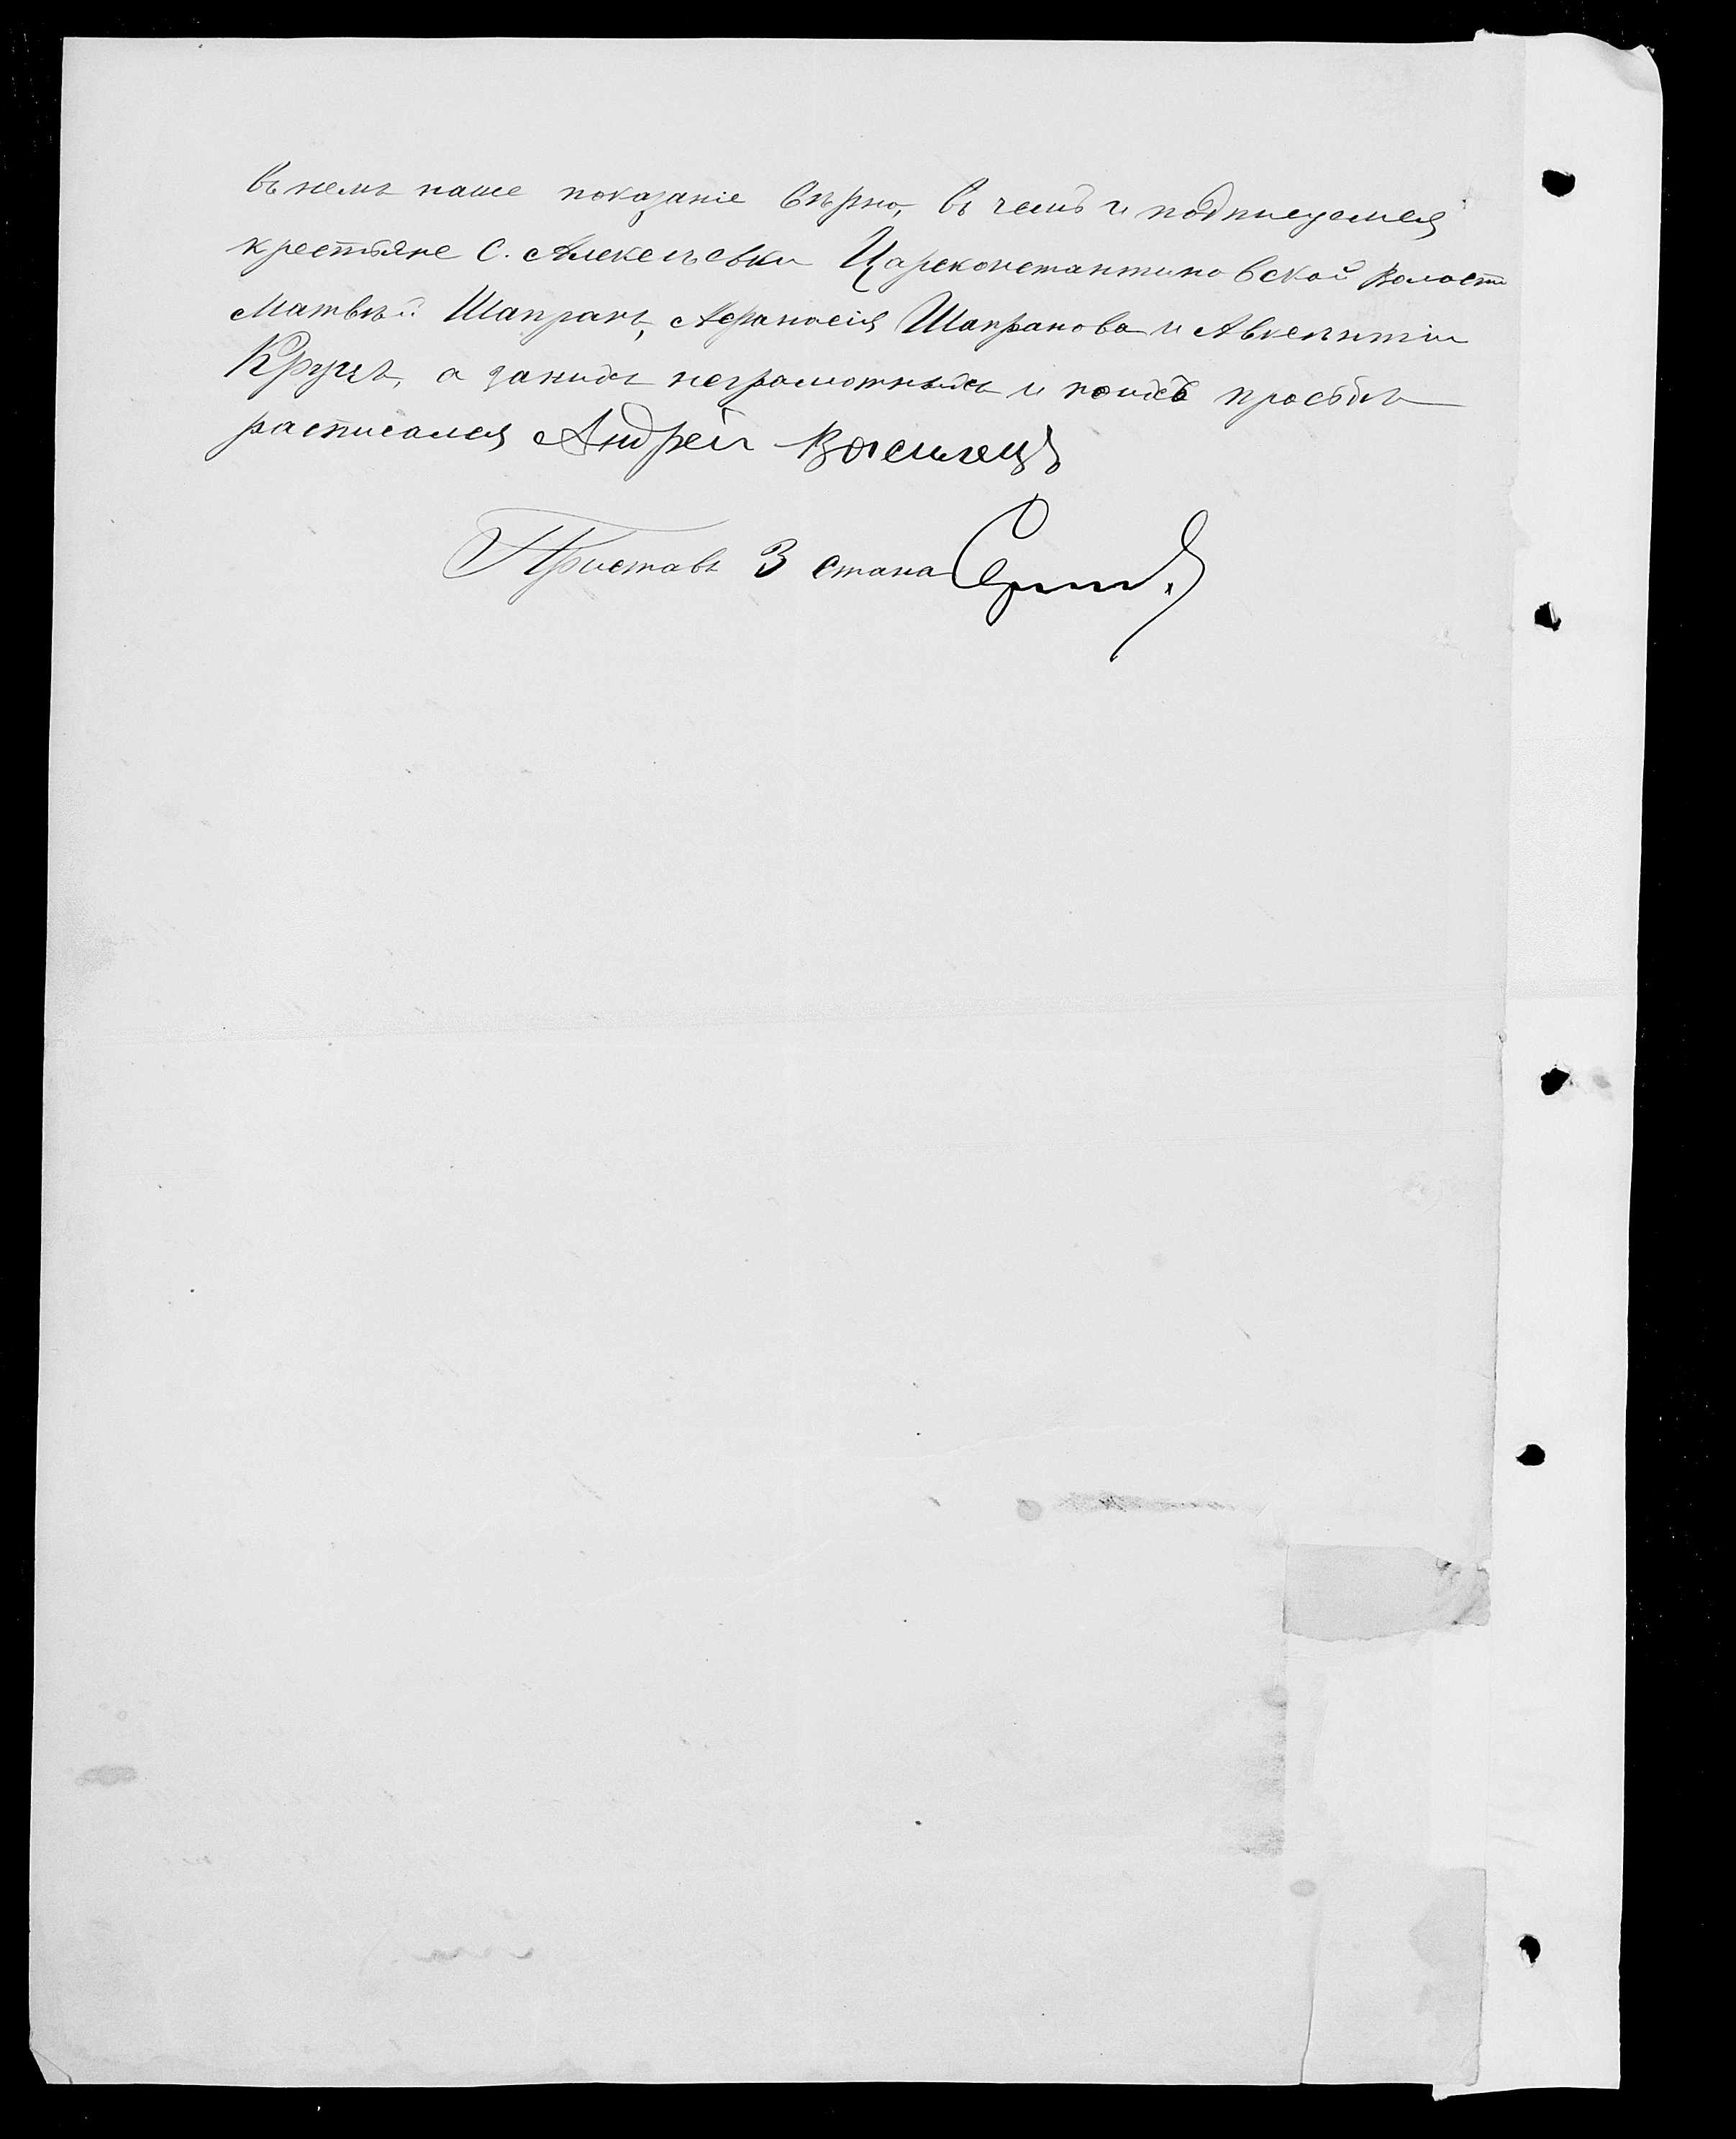 въ немъ наше показаніе вѣрно, въ чемъ и подписуемся
крестьяне с. Алексѣевки Цареконстантиновской волости
Матвѣй Шапранъ, Афанасія Шапранова и Авксентія
Круць, а за нихъ неграмотныхъ и по ихъ просьбѣ
расписался Андрей
Приставъ 3 стана